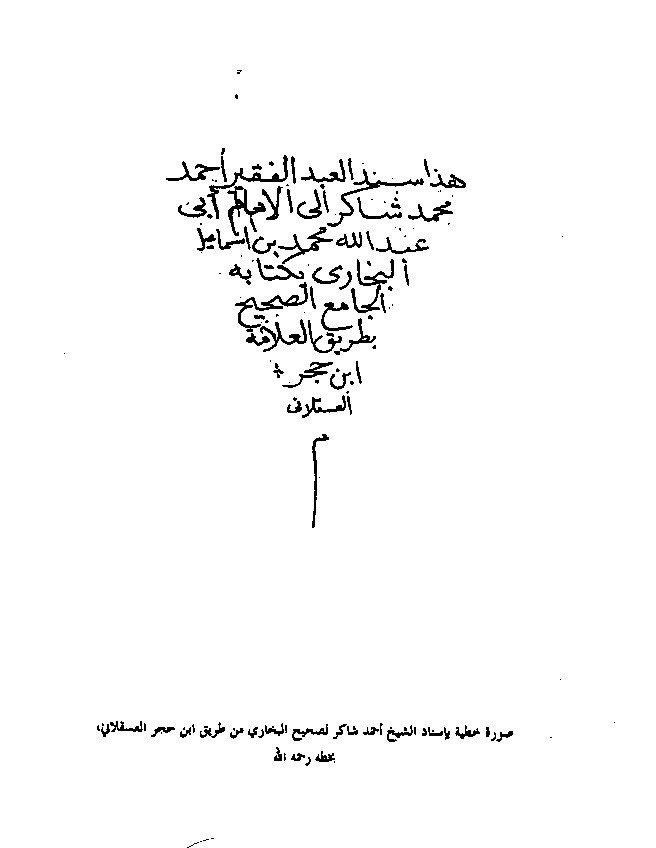 هذا سند العبد الفقير أحمد
محمد شاكر إلى الإمام أبي
عبد الله محمد بن اسماعيل
البخارى بكتابه
الجامع الصحيح
بطريق العلامة
ابن حجر
العسقلانى
م
صورة خطية بإسناد الشيخ أحمد شاكر لصحيح البخاري من طريق ابن حجر العسقلاني،
بخطه رحمه الله